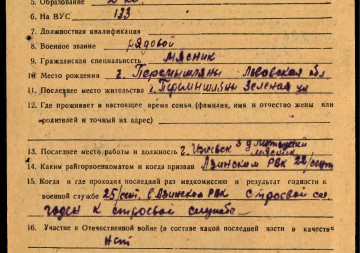 5. Образование 2 кл.
6. На ВУС 133
7. Должностная квалификация
8. Воинское звание рядовой
9. Гражданская специальность мясник
10. Место рождения г. Перемышляны Львовская обл
11. Последнее место жительства г. Перемышляны Зеленая ул
12. Где проживает в настоящее время семья (фамилия, имя и отчество жены или
родителей и точный их адрес)
13. Последнее место работы и должность г. Ижевск
мясник
14. Каким райгорвоенкоматом и когда призван Азинским РВК 22/
15. Когда и где проходил последний раз медкомиссию и результат годности к
военной службе 25/ в Азинском РВК. Строевой
годен к строевой службе
16. Участие в Отечественной войне (в составе какой последней части и в качестве
Нет